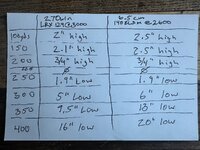 270win 6.5 cm
LRX 129@3000 140 ELDM @ 2600
100yds 2" high 2.5" high
150 2.1" high 2.5" high
200 3/4" high 3/4" high
Ø Ø
250 1.9" Low 1.9" low
300 5" Low 6" low
350 9.5" Low 13" low
400 16" low 20" low